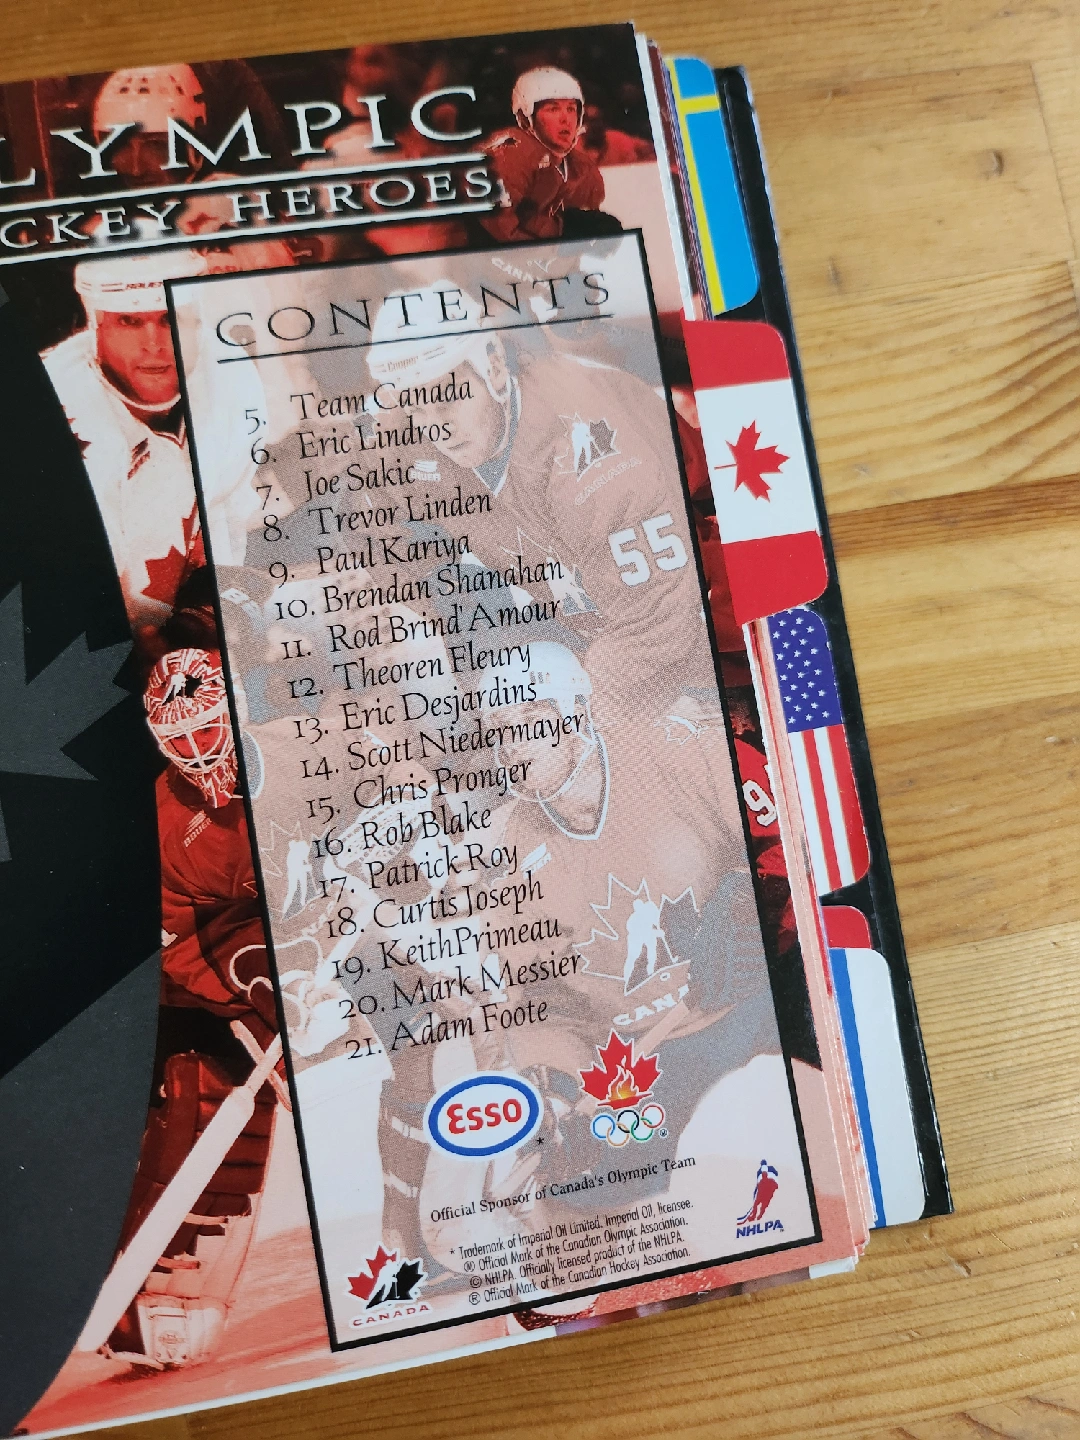 LYMPIC
CKEY HEROES
CONTENTS
5. Team Canada
6. Eric Lindros
7. Joe Sakic
8. Trevor Linden
9. Paul Kariya
10. Brendan Shanahan
11. Rod Brind'Amour
12. Theoren Fleury
13. Eric Desjardins
14. Scott Niedermayer
15. Chris Pronger
16. Rob Blake
17. Patrick Roy
18. Curtis Joseph
19. KeithPrimeau
20. Mark Messier
21. Adam Foote
55
Esso
*
®
Official Sponsor of Canada's Olympic Team
* Trademark of Imperial Oil Limited, Imperial Oil, licensee.
® Official Mark of the Canadian Olympic Association.
© NHLPA. Officially licensed product of the NHLPA.
® Official Mark of the Canadian Hockey Association.
CANADA
NHLPA